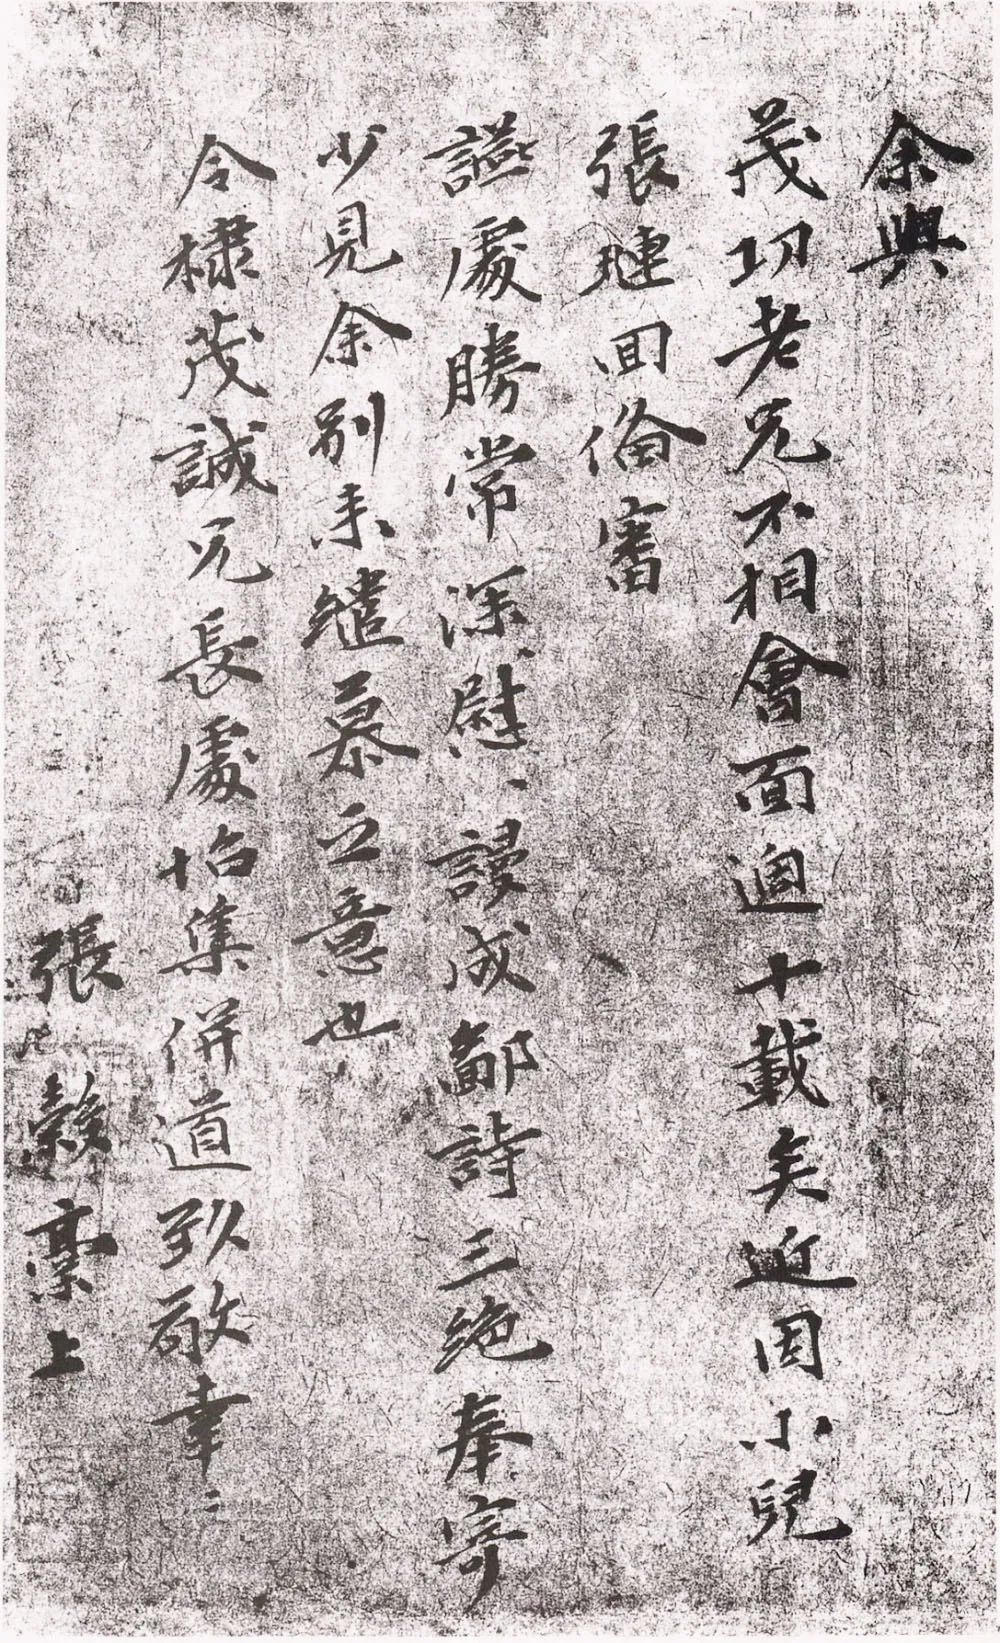 余與
茂功老兄不相會面迴十載矣近因小兒
張璉回備審
讌處勝常深慰謾成鄙詩三絕奉寄
少見余別來繾慕之意也
令棣茂誠兄長處怡集併道致敬幸〻
張穀稾上